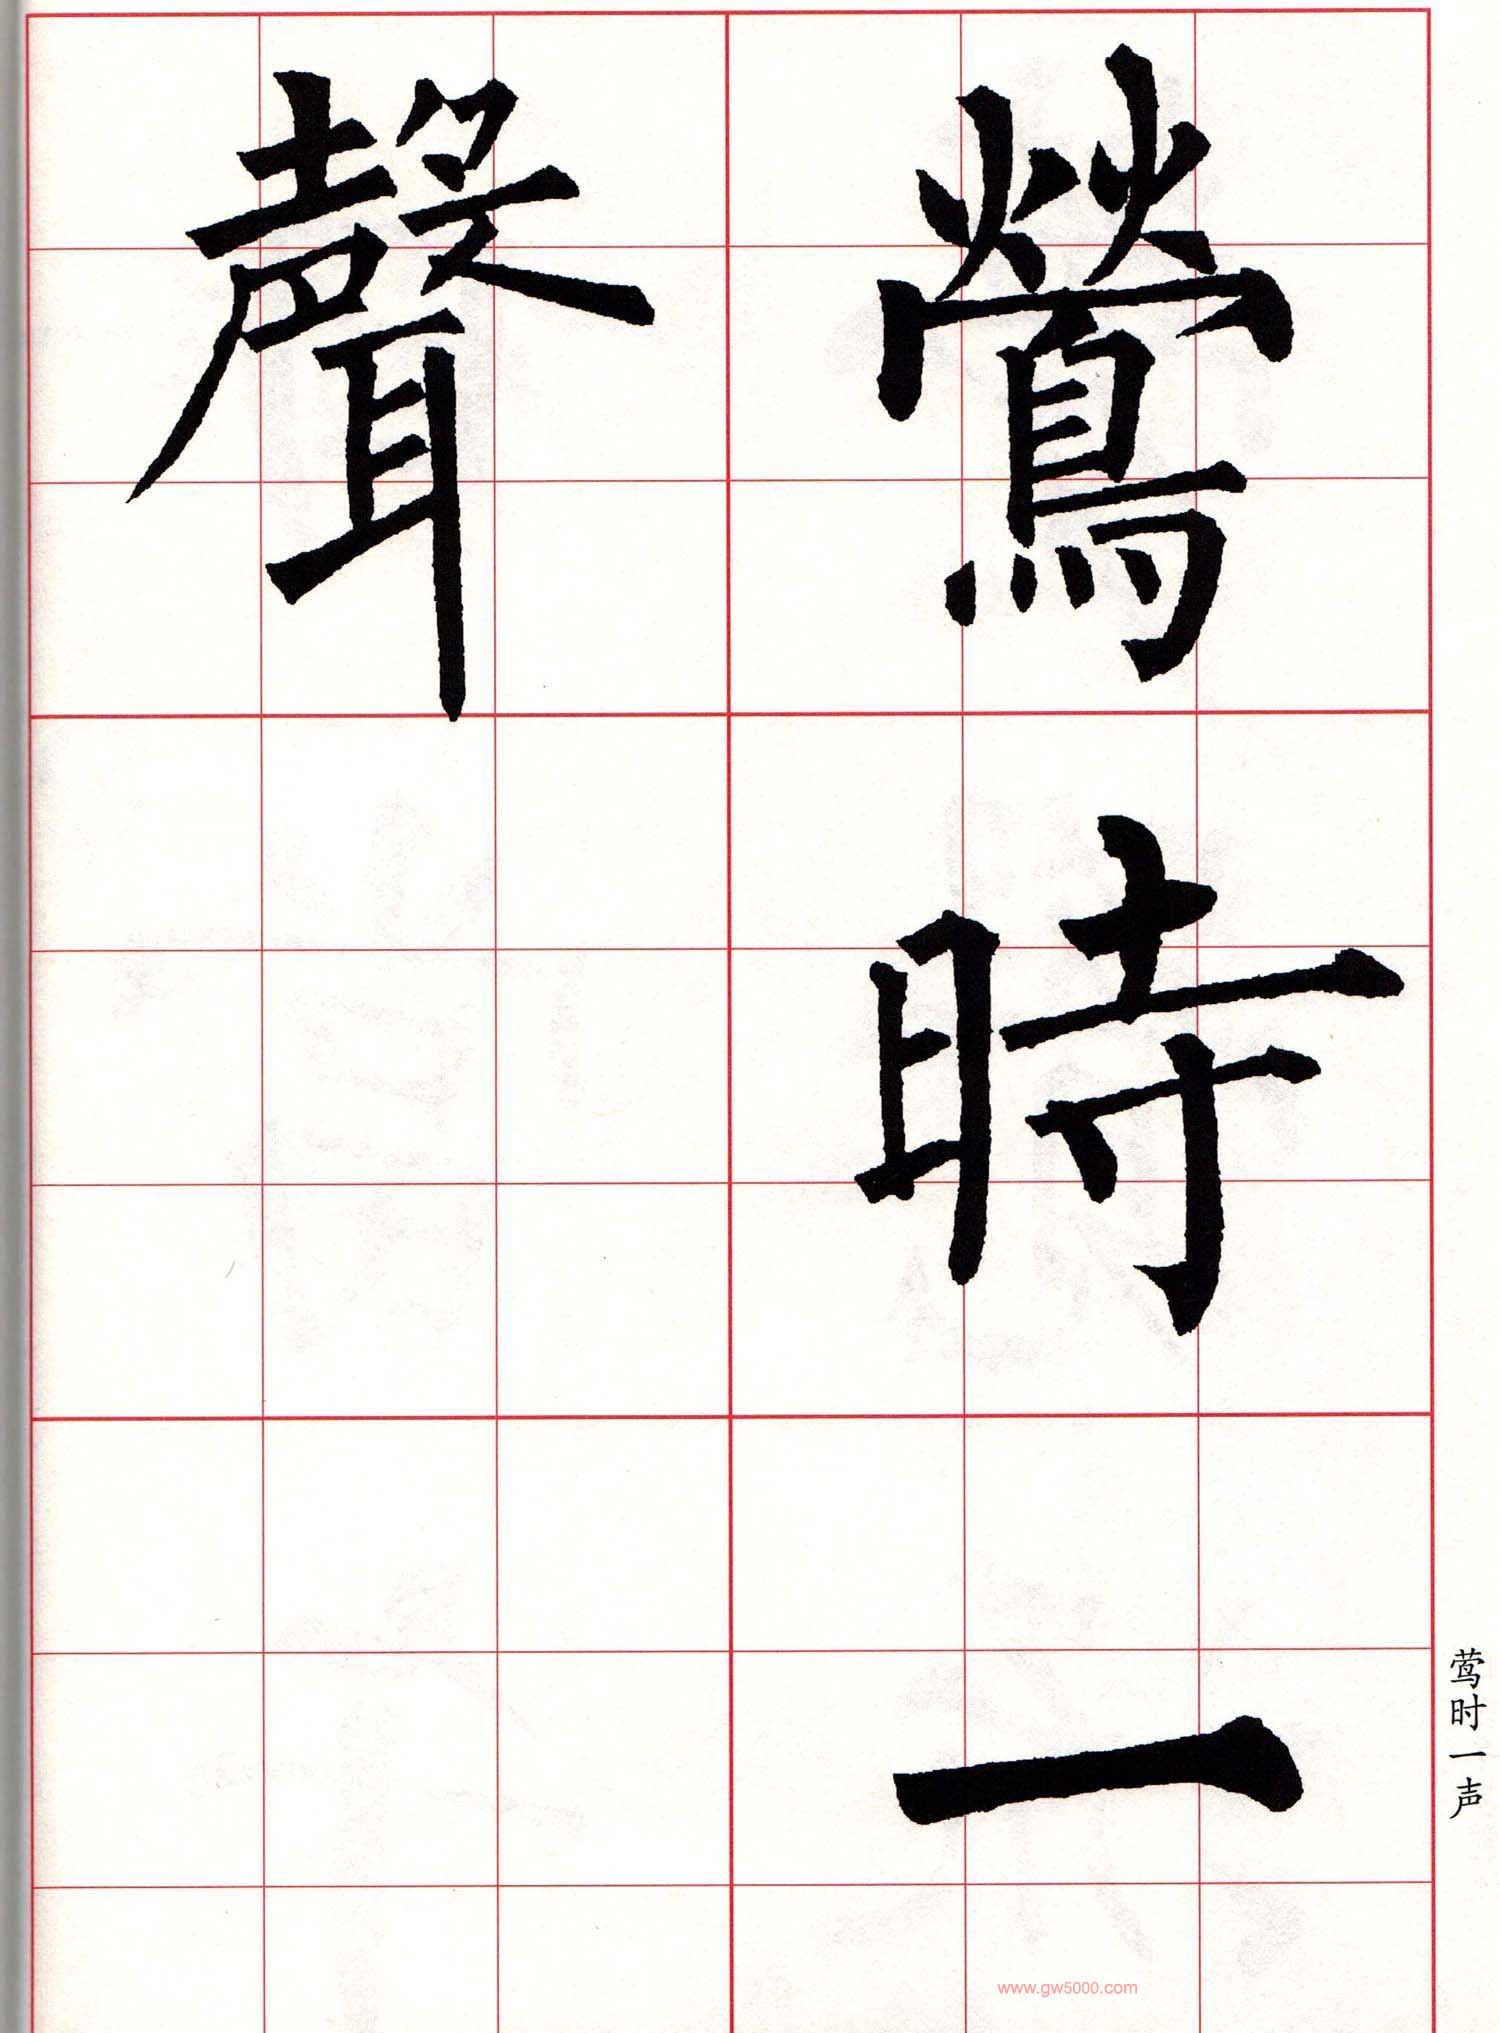 鶯時一
聲
莺时一声
www.gw5000.com